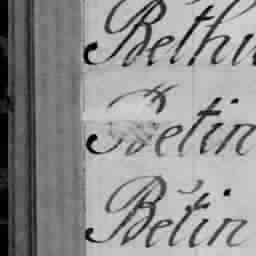 Bethu
Betin
Betin